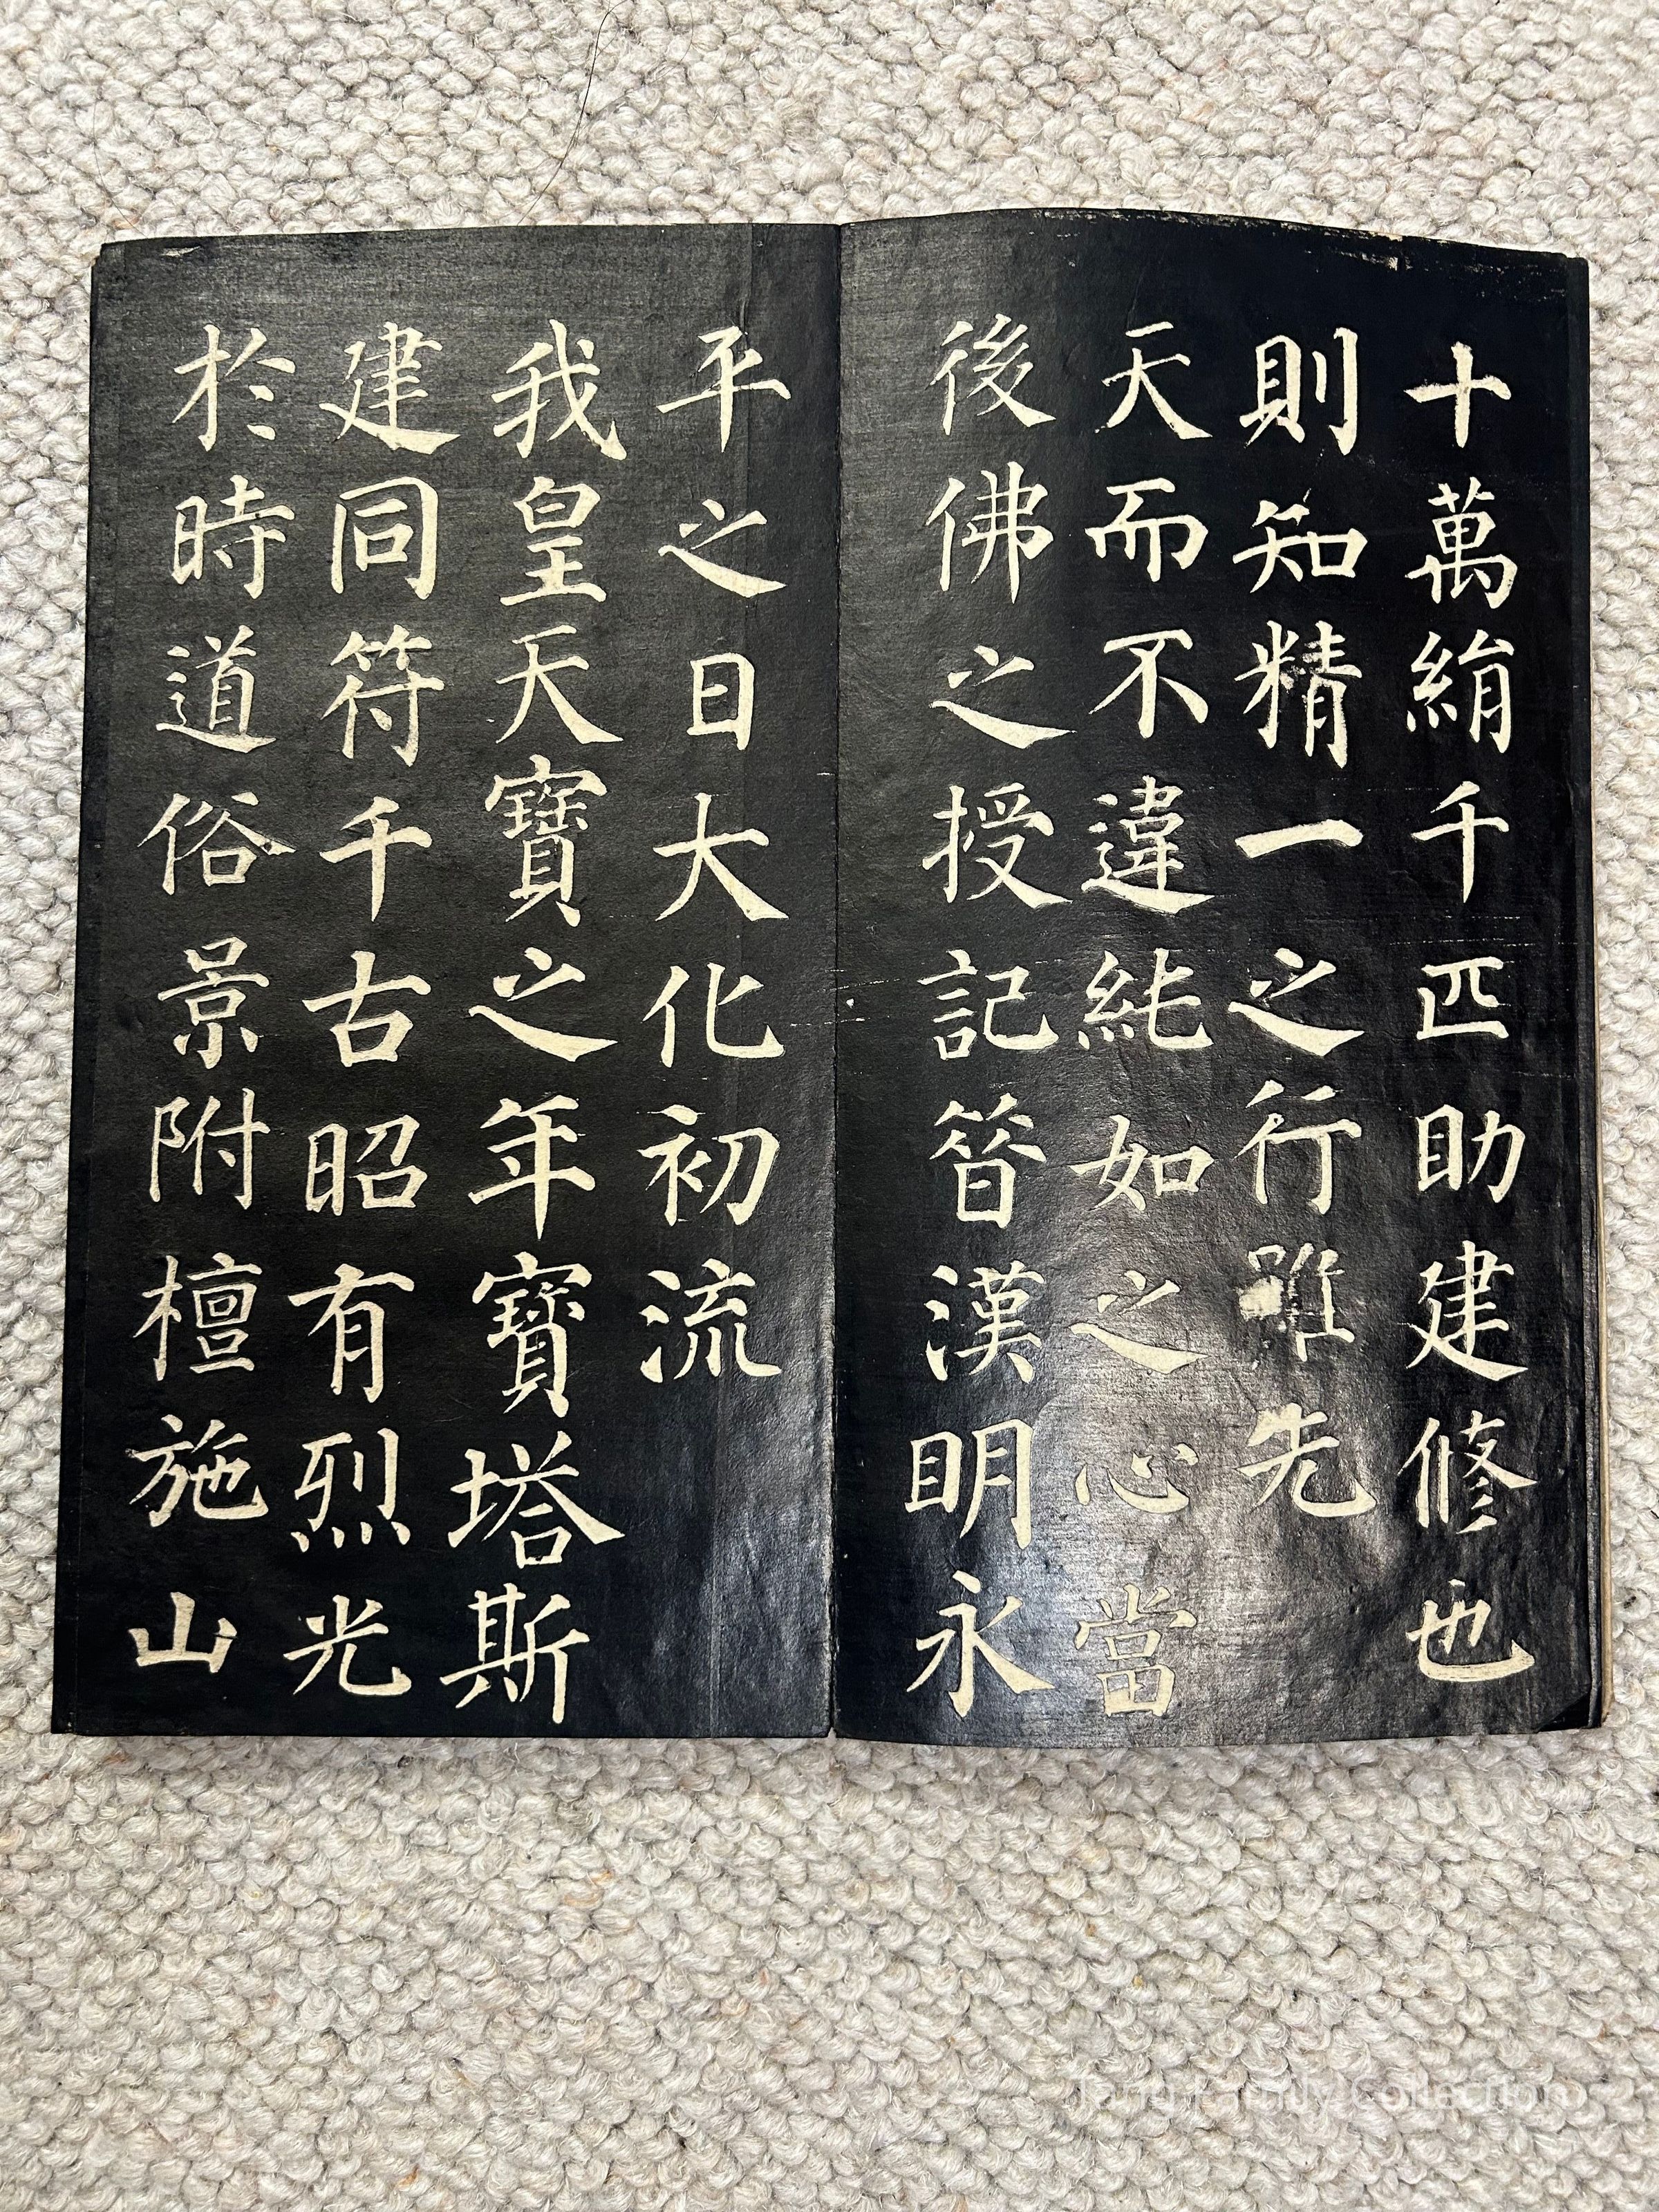 十萬絹千匹助建修也
則知精一之行雖先
天而不違純如之心當
後佛之授記昔漢明永
平之日大化初流
我皇天寶之年寶塔斯
建同符千古昭有烈光
於時道俗景附檀施山
Jang Family Collection